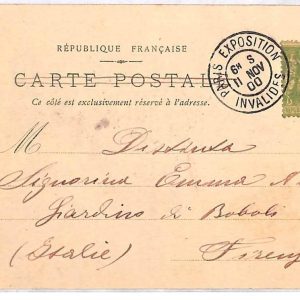 RÉPUBLIQUE FRANÇAISE
CARTE POSTAL
Ce côté est exclusivement réservé à l'adresse.
PARIS EXPOSITION
S
11 NOV
00
INVALIDES
M Distinta
Signorina Emma
Giardino di Boboli
(Italie) Firen